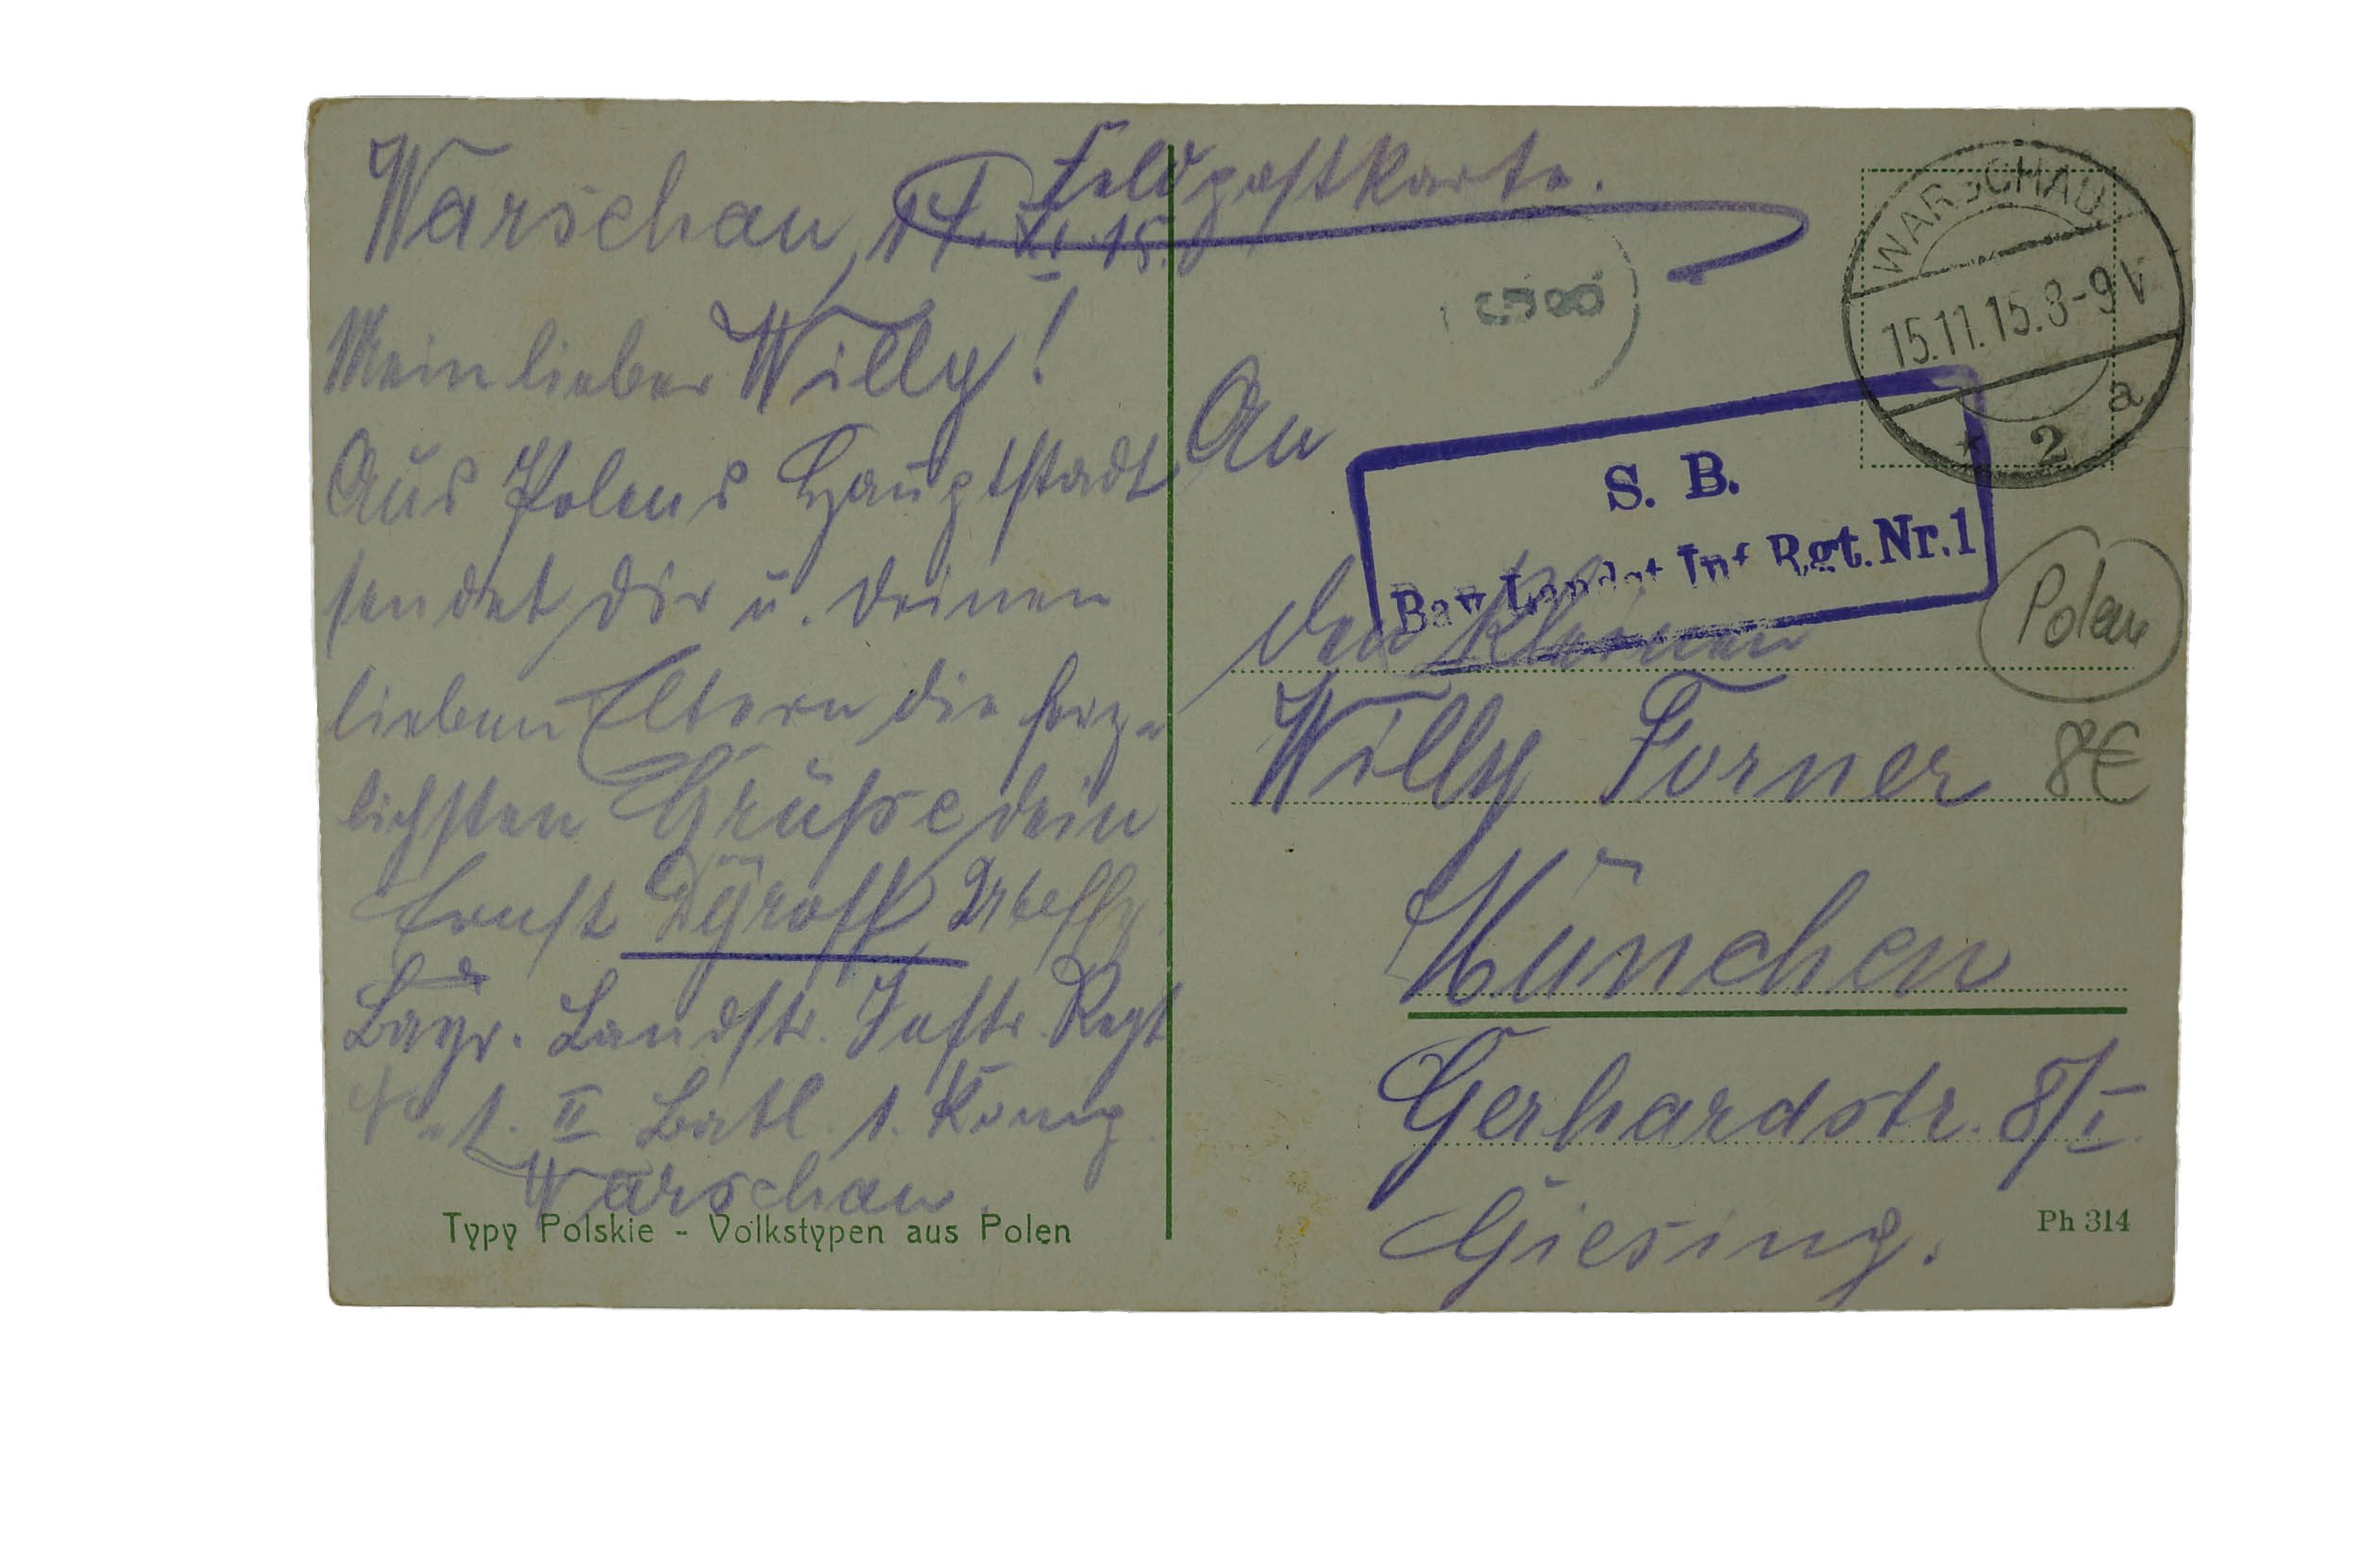 Feldpostkarte.
Warschau, 14. XI. 15.
Mein lieber Willy!
Aus Polens Hauptstadt
sendet Dir u. Deinen
lieben Eltern die herz-
lichsten Grüße dein
Ernst Dÿroff
Bayr. Landstr. Inftr. Regt
No. 1. II Batl. 1. Komp
Warschau.
Typy Polskie - Volkstypen aus Polen
WARSCHAU
15.11.15.8-9V
* 2 a
An
S. B.
Bay Landst Inf Rgt. Nr. 1
den Kleinen
Polen
Willy Forner
8€
München
Gerhardstr. 8/I.
Giesing.
Ph 314